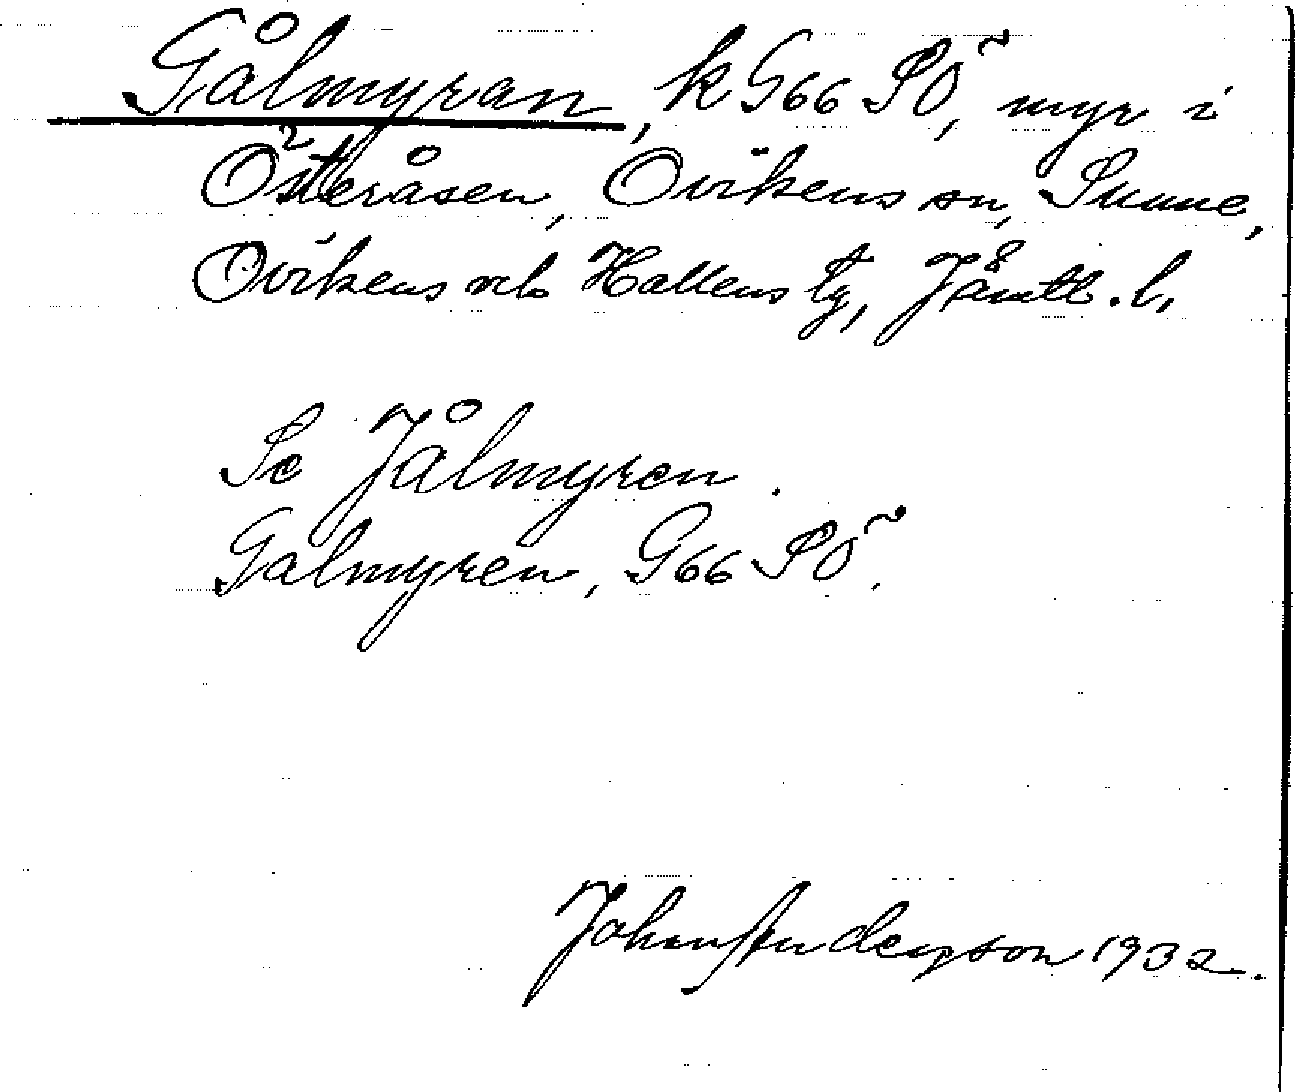 Gålmyran, k G66 SÖ, myr i
Österåsen, Ovikens sn, Sunne,
Ovikens och Hallens tg, Jämtl. l,
Se Jålmyren.
Galmyren, G66 SÖ.
Johan Anderson 1932.